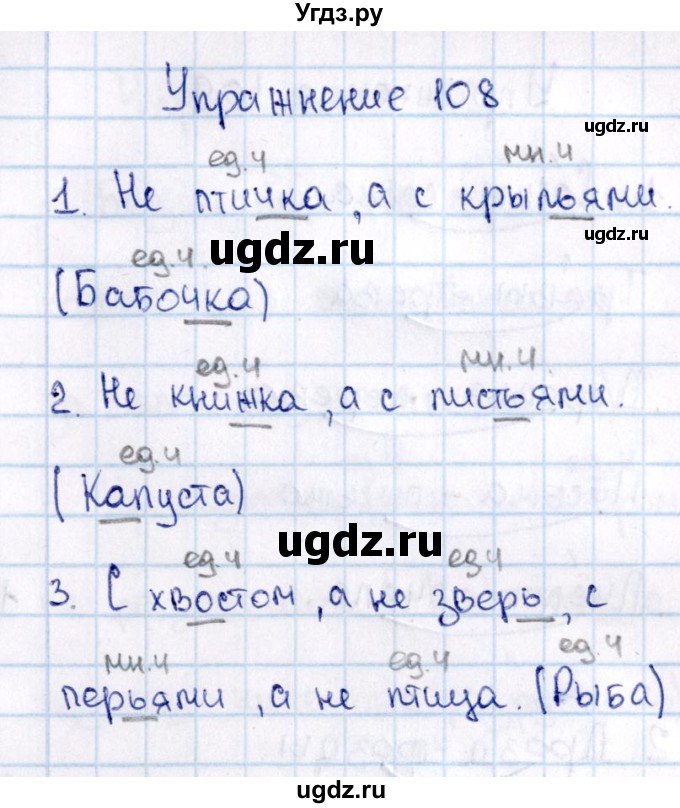 Угдз.ру
Упражнение 108
ugdz.ru
ед.ч мн.ч
1. Не птичка, а с крыльями.
ugdz.ru
ugdz.ru
ед.ч.
(Бабочка)
ugdz.ru
ед.ч мн.ч.
2. Не книжка, а с листьями.
ugdz.ru
ед.ч
(Капуста)
ugdz.ru
ед.ч ед.ч
3. С хвостом, а не зверь, с
ugdz.ru
мн.ч ед.ч ед.ч.
перьями, а не птица. (Рыба)
ugdz.ru
ugdz.ru